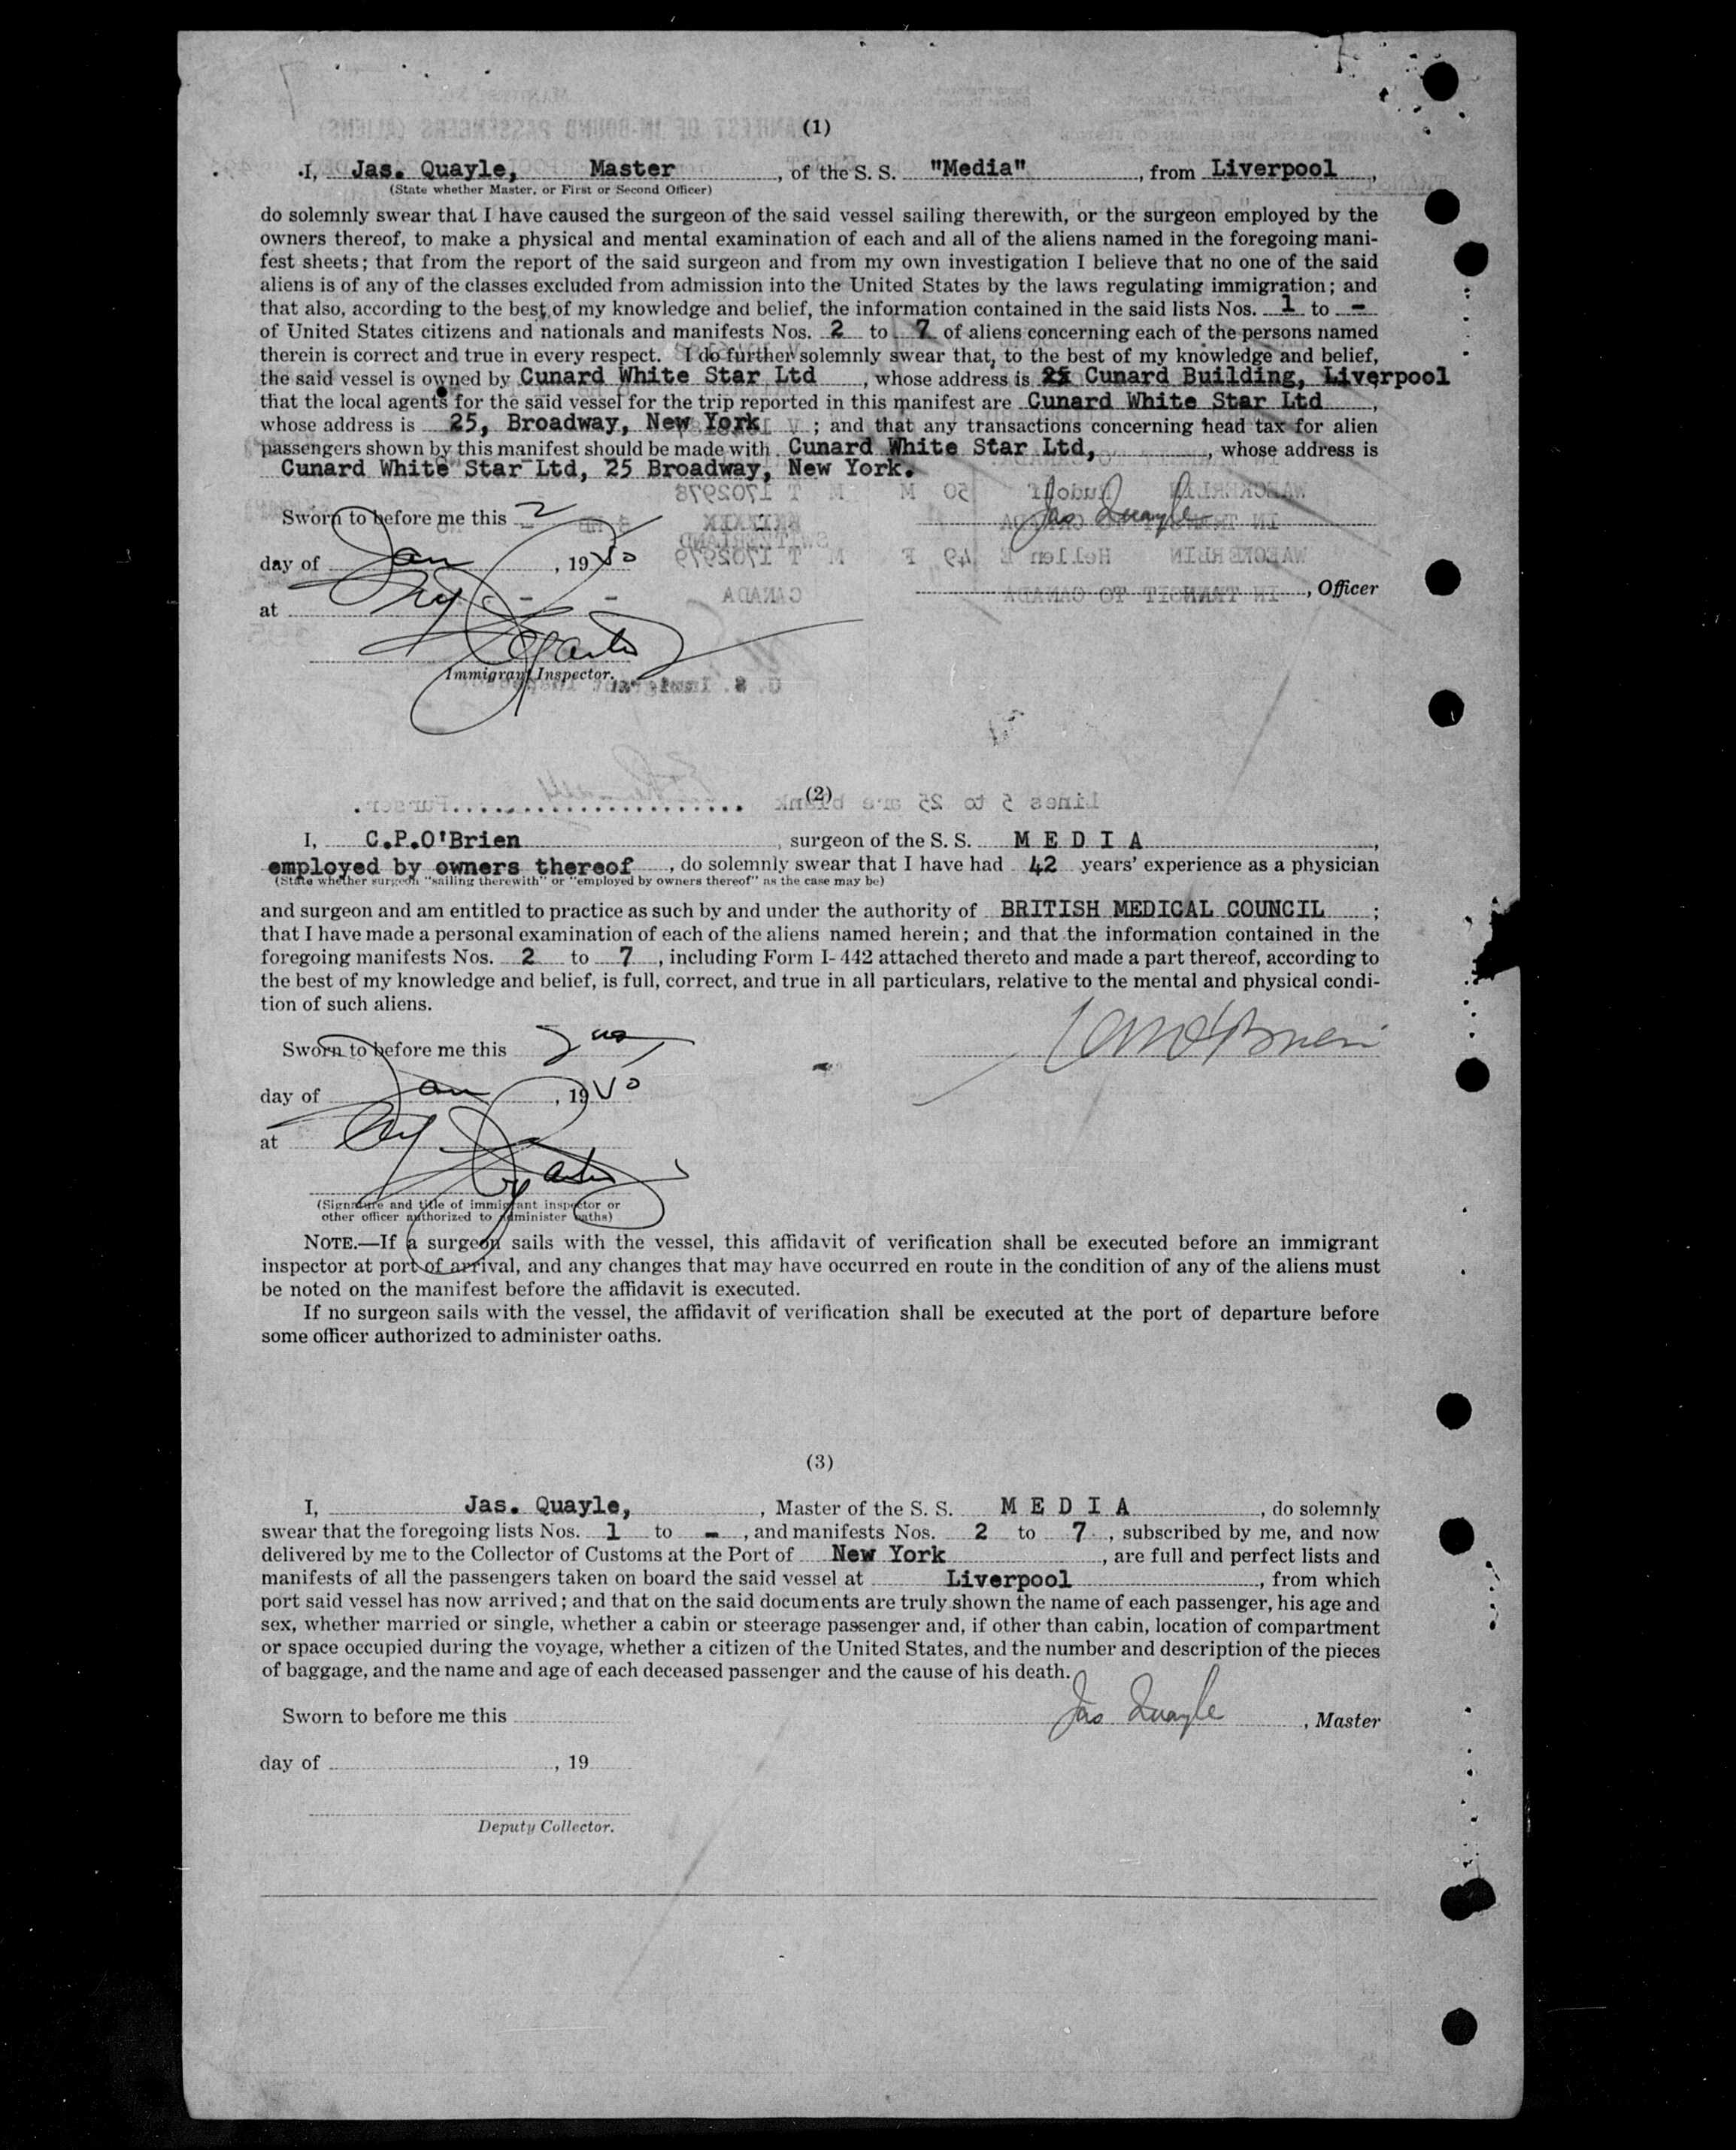 (1)
I, Jas. Quayle, Master, of the S. S. "Media", from Liverpool,
(State whether Master, or First or Second Officer)
do solemnly swear that I have caused the surgeon of the said vessel sailing therewith, or the surgeon employed by the
owners thereof, to make a physical and mental examination of each and all of the aliens named in the foregoing mani-
fest sheets; that from the report of the said surgeon and from my own investigation I believe that no one of the said
aliens is of any of the classes excluded from admission into the United States by the laws regulating immigration; and
that also, according to the best of my knowledge and belief, the information contained in the said lists Nos. 1 to -
of United States citizens and nationals and manifests Nos. 2 to 7 of aliens concerning each of the persons named
therein is correct and true in every respect. I do further solemnly swear that, to the best of my knowledge and belief,
the said vessel is owned by Cunard White Star Ltd, whose address is Cunard Building, Liverpool
that the local agents for the said vessel for the trip reported in this manifest are Cunard White Star Ltd,
whose address is 25, Broadway, New York; and that any transactions concerning head tax for alien
passengers shown by this manifest should be made with Cunard White Star Ltd,, whose address is
Cunard White Star Ltd, 25 Broadway, New York.
Sworn to before me this 2
Jas Quayle
day of Jan, 1950
, Officer
at NY
Immigrant Inspector.
(2)
Lines 5 to 25 are blank ..................... Purser.
I, C.P.O'Brien, surgeon of the S. S. M E D I A,
employed by owners thereof, do solemnly swear that I have had 42 years' experience as a physician
(State whether surgeon "sailing therewith" or "employed by owners thereof" as the case may be)
and surgeon and am entitled to practice as such by and under the authority of BRITISH MEDICAL COUNCIL;
that I have made a personal examination of each of the aliens named herein; and that the information contained in the
foregoing manifests Nos. 2 to 7, including Form I-442 attached thereto and made a part thereof, according to
the best of my knowledge and belief, is full, correct, and true in all particulars, relative to the mental and physical condi-
tion of such aliens.
Sworn to before me this 2nd
O'Brien
day of Jan, 1950
at NY
(Signature and title of immigrant inspector or
other officer authorized to administer oaths)
NOTE.—If a surgeon sails with the vessel, this affidavit of verification shall be executed before an immigrant
inspector at port of arrival, and any changes that may have occurred en route in the condition of any of the aliens must
be noted on the manifest before the affidavit is executed.
If no surgeon sails with the vessel, the affidavit of verification shall be executed at the port of departure before
some officer authorized to administer oaths.
(3)
I, Jas. Quayle,, Master of the S. S. M E D I A, do solemnly
swear that the foregoing lists Nos. 1 to -, and manifests Nos. 2 to 7, subscribed by me, and now
delivered by me to the Collector of Customs at the Port of New York, are full and perfect lists and
manifests of all the passengers taken on board the said vessel at Liverpool, from which
port said vessel has now arrived; and that on the said documents are truly shown the name of each passenger, his age and
sex, whether married or single, whether a cabin or steerage passenger and, if other than cabin, location of compartment
or space occupied during the voyage, whether a citizen of the United States, and the number and description of the pieces
of baggage, and the name and age of each deceased passenger and the cause of his death.
Sworn to before me this
Jas Quayle, Master
day of , 19
Deputy Collector.